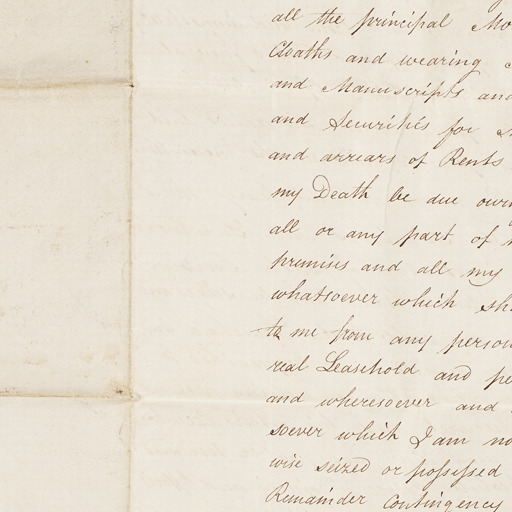 all the principal Mo
Cloaths and wearing
and Manuscripts and
and Securities for
and arrears of Rents
my Death be due owin
all or any part of
premises and all my
whatsoever which sh
to me from any person
real Leasehold and pe
and wheresoever and
soever which I am no
wise seized or possessed
Remainder Contingency